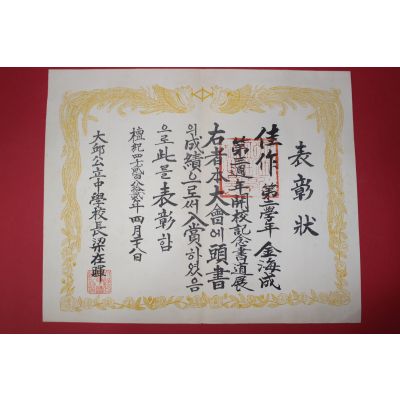 表彰狀
佳作 第二學年 金海成
第二週年開校記念書道展
右者本大會에頭書
의成績으로써入賞하였음
으로此를表彰함
檀紀四千貳百八拾貳年四月廿八日
大邱公立中學校長梁在暉